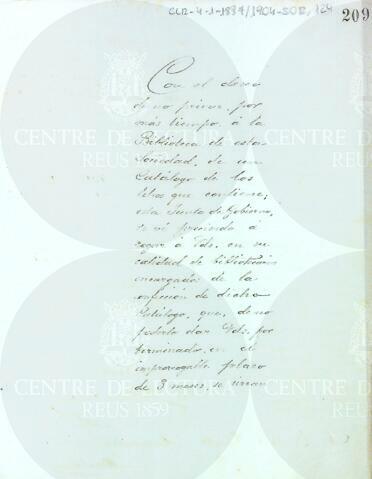 CLR-4-1-1887/1904-SOB, 124
209
Con el deseo
de no privar por
más tiempo á la
Biblioteca de esta
Sociedad, de un
Catálogo de los
libros que contiene,
esta Junta de Gobierno,
se vé precisada á
rogar á Vds. en su
calidad de bibliotecarios
encargados de la
confección de dicho
Catálogo, que, de no
poderlo dar Vds. por
terminado, en el
improrogable plazo
de 3 meses, se sirvan
CENTRE DE LECTURA
REUS 1859
CENTRE DE LECTURA
REUS 1859